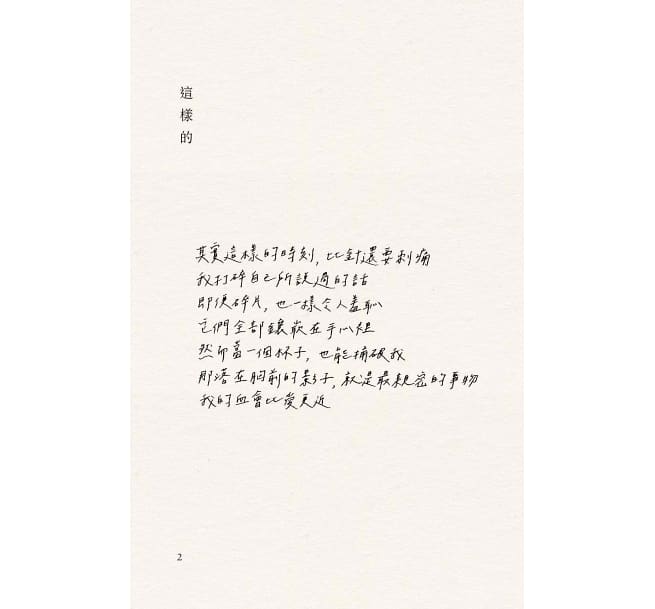 這樣的
其實這樣的時刻，比針還要刺痛
我打碎自己所說過的話
即便碎片，也一樣令人羞恥
它們全部鑲嵌在手心裡
然而當一個杯子，也能捅破我
那落在胸前的影子，就是最親密的事物
我的血會比愛更近
2